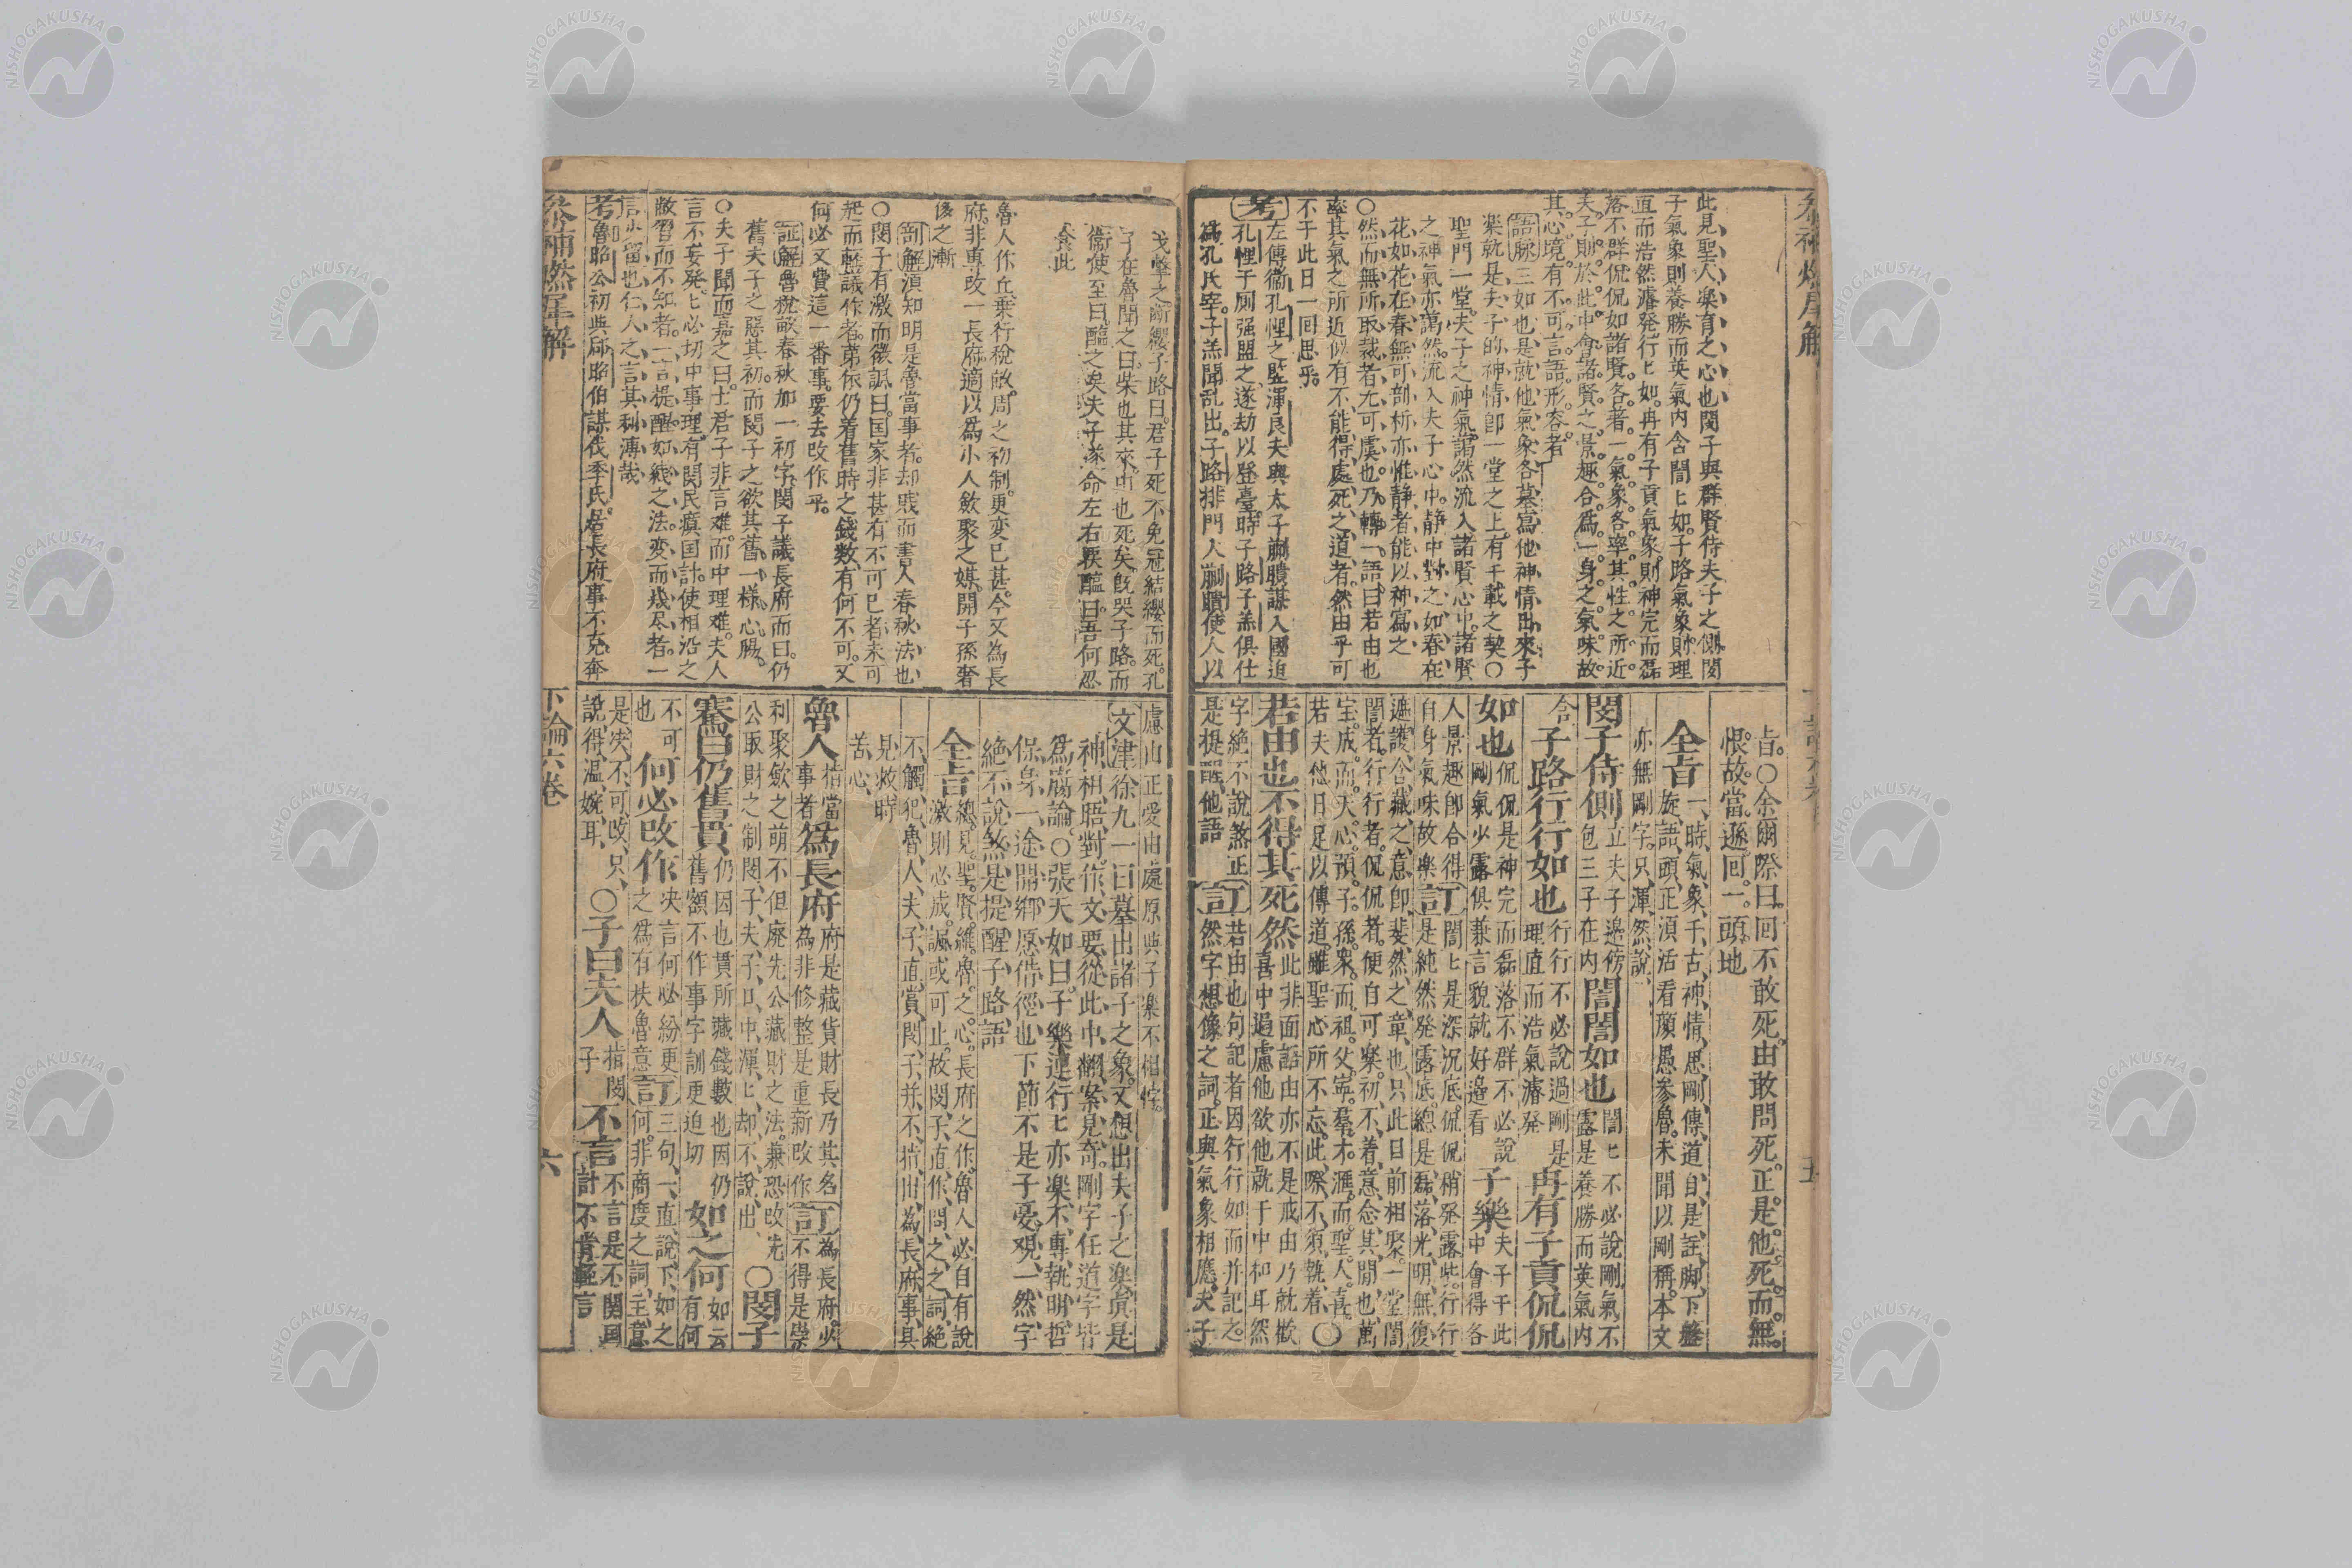 此見聖人樂有之心也閔子與群賢侍夫子之側閔
子氣象則養勝而英氣內含誾〻如子路氣象則理
直而浩然濬発行〻如冉有子貢氣象則神完而磊
落不群侃侃如諸賢各者一氣象各率其性之所近
夫子則於此中會諸賢之景趣合為一身之氣味故
其心境有不可言語形容者
語脉三如也是就他氣象各摹寫他神情出來子
樂就是夫子的神情即一堂之上有千載之契〇
聖門一堂夫子之神氣藹然流入諸賢心中諸賢
之神氣亦藹然流入夫子心中静中對之如春在
花如花在春無可剖析亦惟静者能以神寫之
〇然而無所取裁者尤可虞也乃轉一語曰若由也
率其氣之所近似有不能得處死之道者然由乎可
不于此日一囘思乎
考左傳衞孔悝之豎渾良夫與太子蒯聵謀入國迫
孔悝于厠强盟之遂劫以登臺時子路子羔俱仕
爲孔氏宰子羔聞乱出子路排門入蒯聵使人以
旨〇余爾際曰回不敢死由敢問死正是他死而無
恨故當遜回一頭地
全旨一時氣象千古神情思剛傳道自是註脚下盤
旋語頭正須活看顏愚參魯未聞以剛稱本文
亦無剛字只渾然說
閔子侍側立夫子邉傍包三子在内誾誾如也誾〻不必說剛氣不露是養勝而英氣内
含子路行行如也行行不必說過剛是理直而浩氣濬発冉有子貢侃侃
如也侃侃是神完而磊落不群不必說剛氣少露俱兼言貌就好邉看子樂夫子于此中會得各
人景趣即合得自身氣味故樂訂誾〻是深沉底侃侃稍発露些行行是純然発露底總是磊落光明無復
遮護含藏之意即斐然之章也只此目前相聚一堂誾
誾者行行者侃侃者便自可樂初不着意念其間也萬
宝成而天心預子孫衆而祖父寧羣木滙而聖人喜
若夫他日足以傳道雖聖心所不忘此際不須執着〇
若由也不得其死然此非面語由亦不是戒由乃就歡喜中過慮他欲他就于中和耳然
字絶不說煞正是提醒他語訂若由也句記者因行行如而并記之然字想像之詞正與氣象相應夫子
戈擊之断纓子路曰君子死不免冠結纓而死孔
子在魯聞之曰柴也其來由也死矣既哭子路而
衞使至曰醢之矣夫子遂命左右覆醢曰吾何忍
食此
魯人作丘乗行稅畝周之初制更变已甚今又為長
府非專改一長府適以爲小人斂聚之媒開子孫奢
侈之漸
剖解湏知明是魯當事者却貶而書人春秋法也
〇閔子有激而微諷曰国家非甚有不可已者未可
起而輕議作者第依仍着舊時之錢数有何不可又
何必又費這一番事要去改作乎
証解魯稅畝春秋加一初字閔子議長府而曰仍
舊夫子之惡其初而閔子之欲其舊一樣心腸
〇夫子聞而嘉之曰士君子非言难而中理难夫人
言不妄発〻必切中事理有関民瘼国計使相沿之
敝習而不知者一言提醒如綫之法変而幾尽者一
言亦留也仁人之言其利溥哉
考魯昭公初與郈昭伯謀伐季氏居長府事不克奔
慮由正愛由處原與子樂不相悖
文津徐九一曰摹出諸子之象又想出夫子之樂眞是
神相晤對作文要從此中翻案見奇剛字任道字皆
爲腐論〇張天如曰子樂連行〻亦樂不專執明哲
保身一途開鄉愿借徑也下節不是子憂观一然字
絶不說煞是提醒子路語
全旨總見聖賢維魯之心長府之作魯人必自有說
激則必成諷或可止故閔子直作問之之詞絶
不觸犯魯人夫子直賞閔子并不指出為長府事具
見救時
苦心
魯人指當事者爲長府府是藏貨財長乃其名為非修整是重新改作訂為長府必不得是崇
利聚斂之萌不但廃先公藏財之法兼恐改先公取財之制閔子夫子口中渾〻却不說出〇閔子
騫曰仍舊貫仍因也貫所臓錢數也因仍舊額不作事字訓更迫切如之何如云有何
不可也何必改作夬言何必紛更之爲有扶魯意訂三句一直說下如之何非商度之詞主意
是决不可改只說得温婉耳〇子曰夫人指閔子不言不言是不関国計不肯輕言
參補燃犀解
下論六卷
六